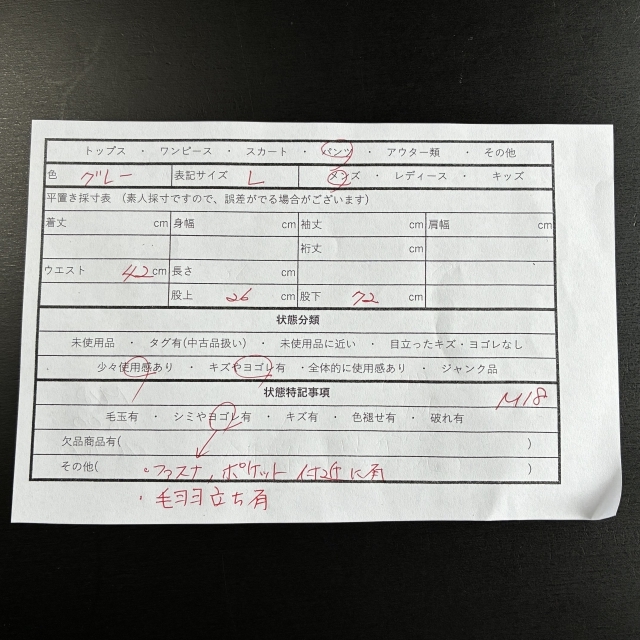 トップス ・ ワンピース ・ スカート ・ パンツ ・ アウター類 ・ その他
色 グレー 表記サイズ L メンズ ・ レディース ・ キッズ
平置き採寸表 (素人採寸ですので、誤差がでる場合がございます)
着丈 cm 身幅 cm 袖丈 cm 肩幅 cm
裄丈 cm
ウエスト 42cm 長さ cm
股上 26 cm 股下 72 cm
状態分類
未使用品 ・ タグ有(中古品扱い) ・ 未使用品に近い ・ 目立ったキズ・ヨゴレなし
少々使用感あり ・ キズやヨゴレ有 ・全体的に使用感あり ・ ジャンク品
状態特記事項 M18
毛玉有 ・ シミやヨゴレ有 ・ キズ有 ・ 色褪せ有 ・ 破れ有
欠品商品有( )
その他( ・ファスナ, ポケット 付近に有 )
・毛羽立ち有